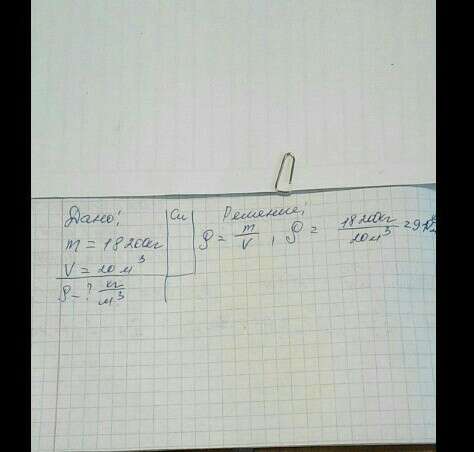 Дано: Си Решение:
m = 18200кг
V = 20 м³
ρ - ? кг/м³
ρ = m/V , ρ = 18200кг/20м³ =